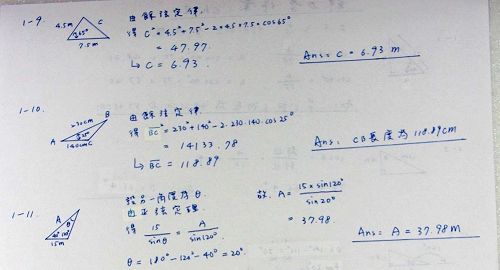 1-9. 4.5m C 65° 7.5m
由餘弦定律.
得 C² = 4.5² + 7.5² - 2×4.5×7.5×cos65°
= 47.97
↳ C = 6.93.
Ans: C = 6.93 m
1-10. 230cm B A 25° 140cm C
由餘弦定律
得 BC² = 230² + 140² - 2.230.140.cos25°
= 14133.78
↳ BC = 118.89
Ans: CB長度為118.89cm
1-11. A θ 40° 120° 15m
設另一角度為θ.
由正弦定理.
得 15/sinθ = A/sin120°
θ = 180° - 120° - 40° = 20°
故. A = 15×sin120°/sin20°
= 37.98.
Ans: A = 37.98 m